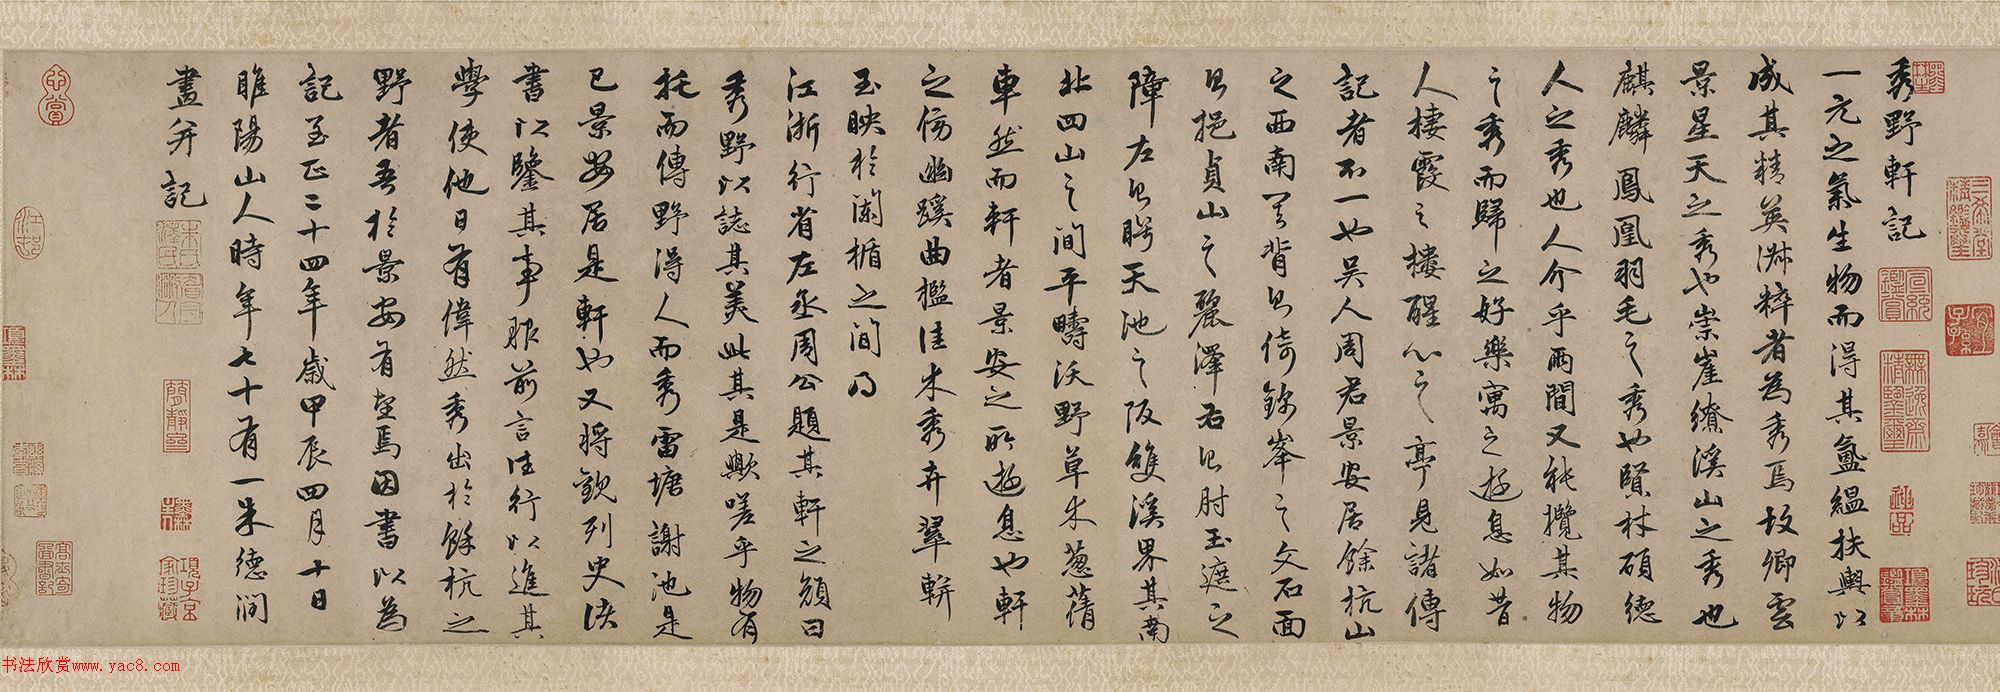 秀野軒記
一元之氣生物而得其氤縕扶輿以
成其精英淑粹者為秀焉故卿雲
景星天之秀也崇崖繚溪山之秀也
麒麟鳳凰羽毛之秀也賢材碩德
人之秀也人介乎兩間又能攬其物
之秀而歸之好樂寓之遊息如昔
人棲霞之樓醒心之亭見諸傳
記者不一也吴人周君景安居餘杭山
之西南其背則倚錦峯之文石面
則挹貞山之麗澤右則肘玉遮之
障左則盻天池之阪雙溪界其南
北四山之間平疇沃野草木葱蒨
車然而軒者景安之所遊息也軒
之傍幽蹊曲檻佳木秀卉翠軿
玉映於闌楯之間乃
江浙行省左丞周公題其軒之額曰
秀野以誌其美此其是歟嗟乎物有
托而傳野得人而秀雷塘謝池是
已景安居是軒也又將列史詩
書以鑒其事服前言往行以進其
學使他日有偉然秀出於餘杭之
野者吾於景安有望焉因書以為
記至正二十四年歲甲辰四月十日
睢陽山人時年七十有一朱德潤
畫并記
书法欣赏www.yac8.com